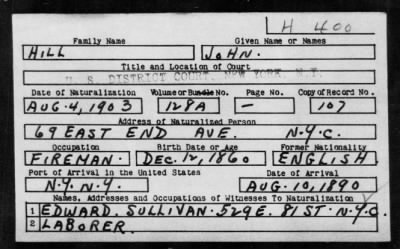 H 400
Family Name Given Name or Names
HILL JOHN.
Title and Location of Court
U. S. DISTRICT COURT, NEW YORK, N.Y.
Date of Naturalization Volume or Bundle No. Page No. Copy of Record No.
AUG. 4, 1903 128A — 107
Address of Naturalized Person
69 EAST END AVE. N.Y.C.
Occupation Birth Date or Age Former Nationality
FIREMAN. DEC. 12, 1860 ENGLISH
Port of Arrival in the United States Date of Arrival
N.Y. N.Y. AUG. 10, 1890
Names, Addresses and Occupations of Witnesses To Naturalization
1 EDWARD. SULLIVAN. 529 E. 81 ST. N.Y.C.
2 LABORER.